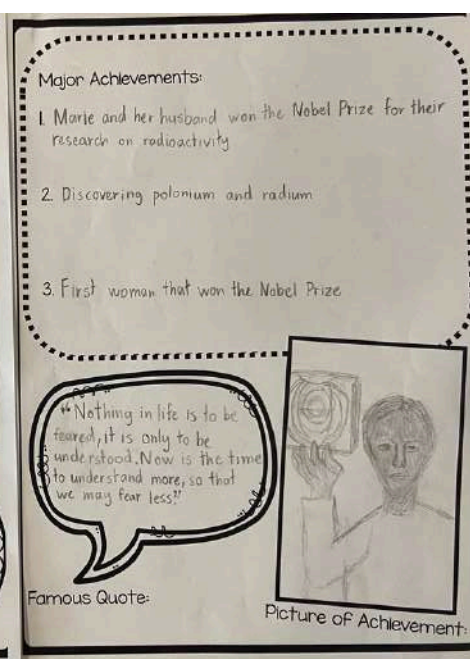 Major Achievements:
1. Marie and her husband won the Nobel Prize for their
research on radioactivity
2. Discovering polonium and radium
3. First woman that won the Nobel Prize
"Nothing in life is to be
feared, it is only to be
understood. Now is the time
to understand more, so that
we may fear less."
Famous Quote:
Picture of Achievement: